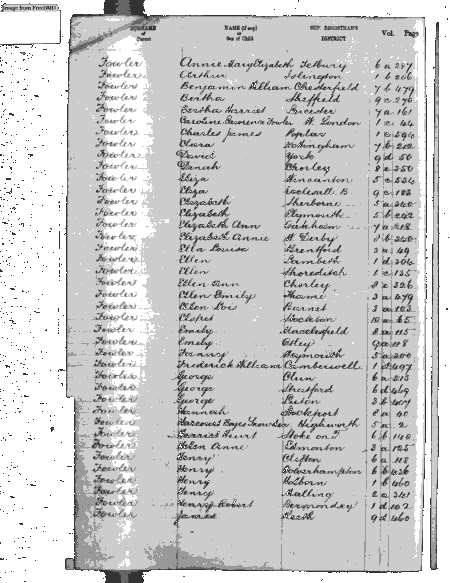 Image from FreeBMD
SURNAME of Parent NAME (if any) or Sex of Child SUP. REGISTRAR'S DISTRICT Vol. Page
Fowler Annie Mary Elizabeth Tetbury 6 a 287
Fowler Arthur Islington 1 b 206
Fowler Benjamin William Chesterfield 7 b 479
Fowler Bertha Sheffield 9 c 276
Fowler Bertha Harriet Leicester 7 a 161
Fowler Caroline Florence Fowler W. London 1 c 44
Fowler Charles James Poplar 1 c 594
Fowler Clara Nottingham 7 b 212
Fowler David York 9 d 50
Fowler Dinah Chorley 8 e 350
Fowler Eliza 5 c 234
Fowler Eliza Ecclesall B 9 c 183
Fowler Elizabeth Sherborne 5 a 340
Fowler Elizabeth Plymouth 5 b 242
Fowler Elizabeth Ann Oakham 7 a 218
Fowler Elizabeth Annie W. Derby 8 b 320
Fowler Ella Louisa Brentford 3 a 49
Fowler Ellen Lambeth 1 d 306
Fowler Ellen Shoreditch 1 c 125
Fowler Ellen Ann Chorley 8 e 326
Fowler Ellen Emily Thame 3 a 479
Fowler Ellen Lois Barnet 3 a 103
Fowler Stockton 10 a 85
Fowler Emily Macclesfield 8 a 115
Fowler Emily Otley 9 a 118
Fowler Fanny Weymouth 5 a 300
Fowler Frederick William Camberwell 1 d 497
Fowler George Clun 6 a 513
Fowler George Stratford 6 d 469
Fowler George Luton 3 b 407
Fowler Hannah Stockport 8 a 40
Fowler Highworth 5 a 2
Fowler Stoke on T. 6 b 140
Fowler Helen Anne Edmonton 3 a 125
Fowler Henry Clifton 6 a 118
Fowler Henry Wolverhampton 6 b 436
Fowler Henry Holborn 1 b 460
Fowler Henry Malling 2 a 341
Fowler Henry Robert Bermondsey 1 d 102
Fowler James Leeds 9 b 460